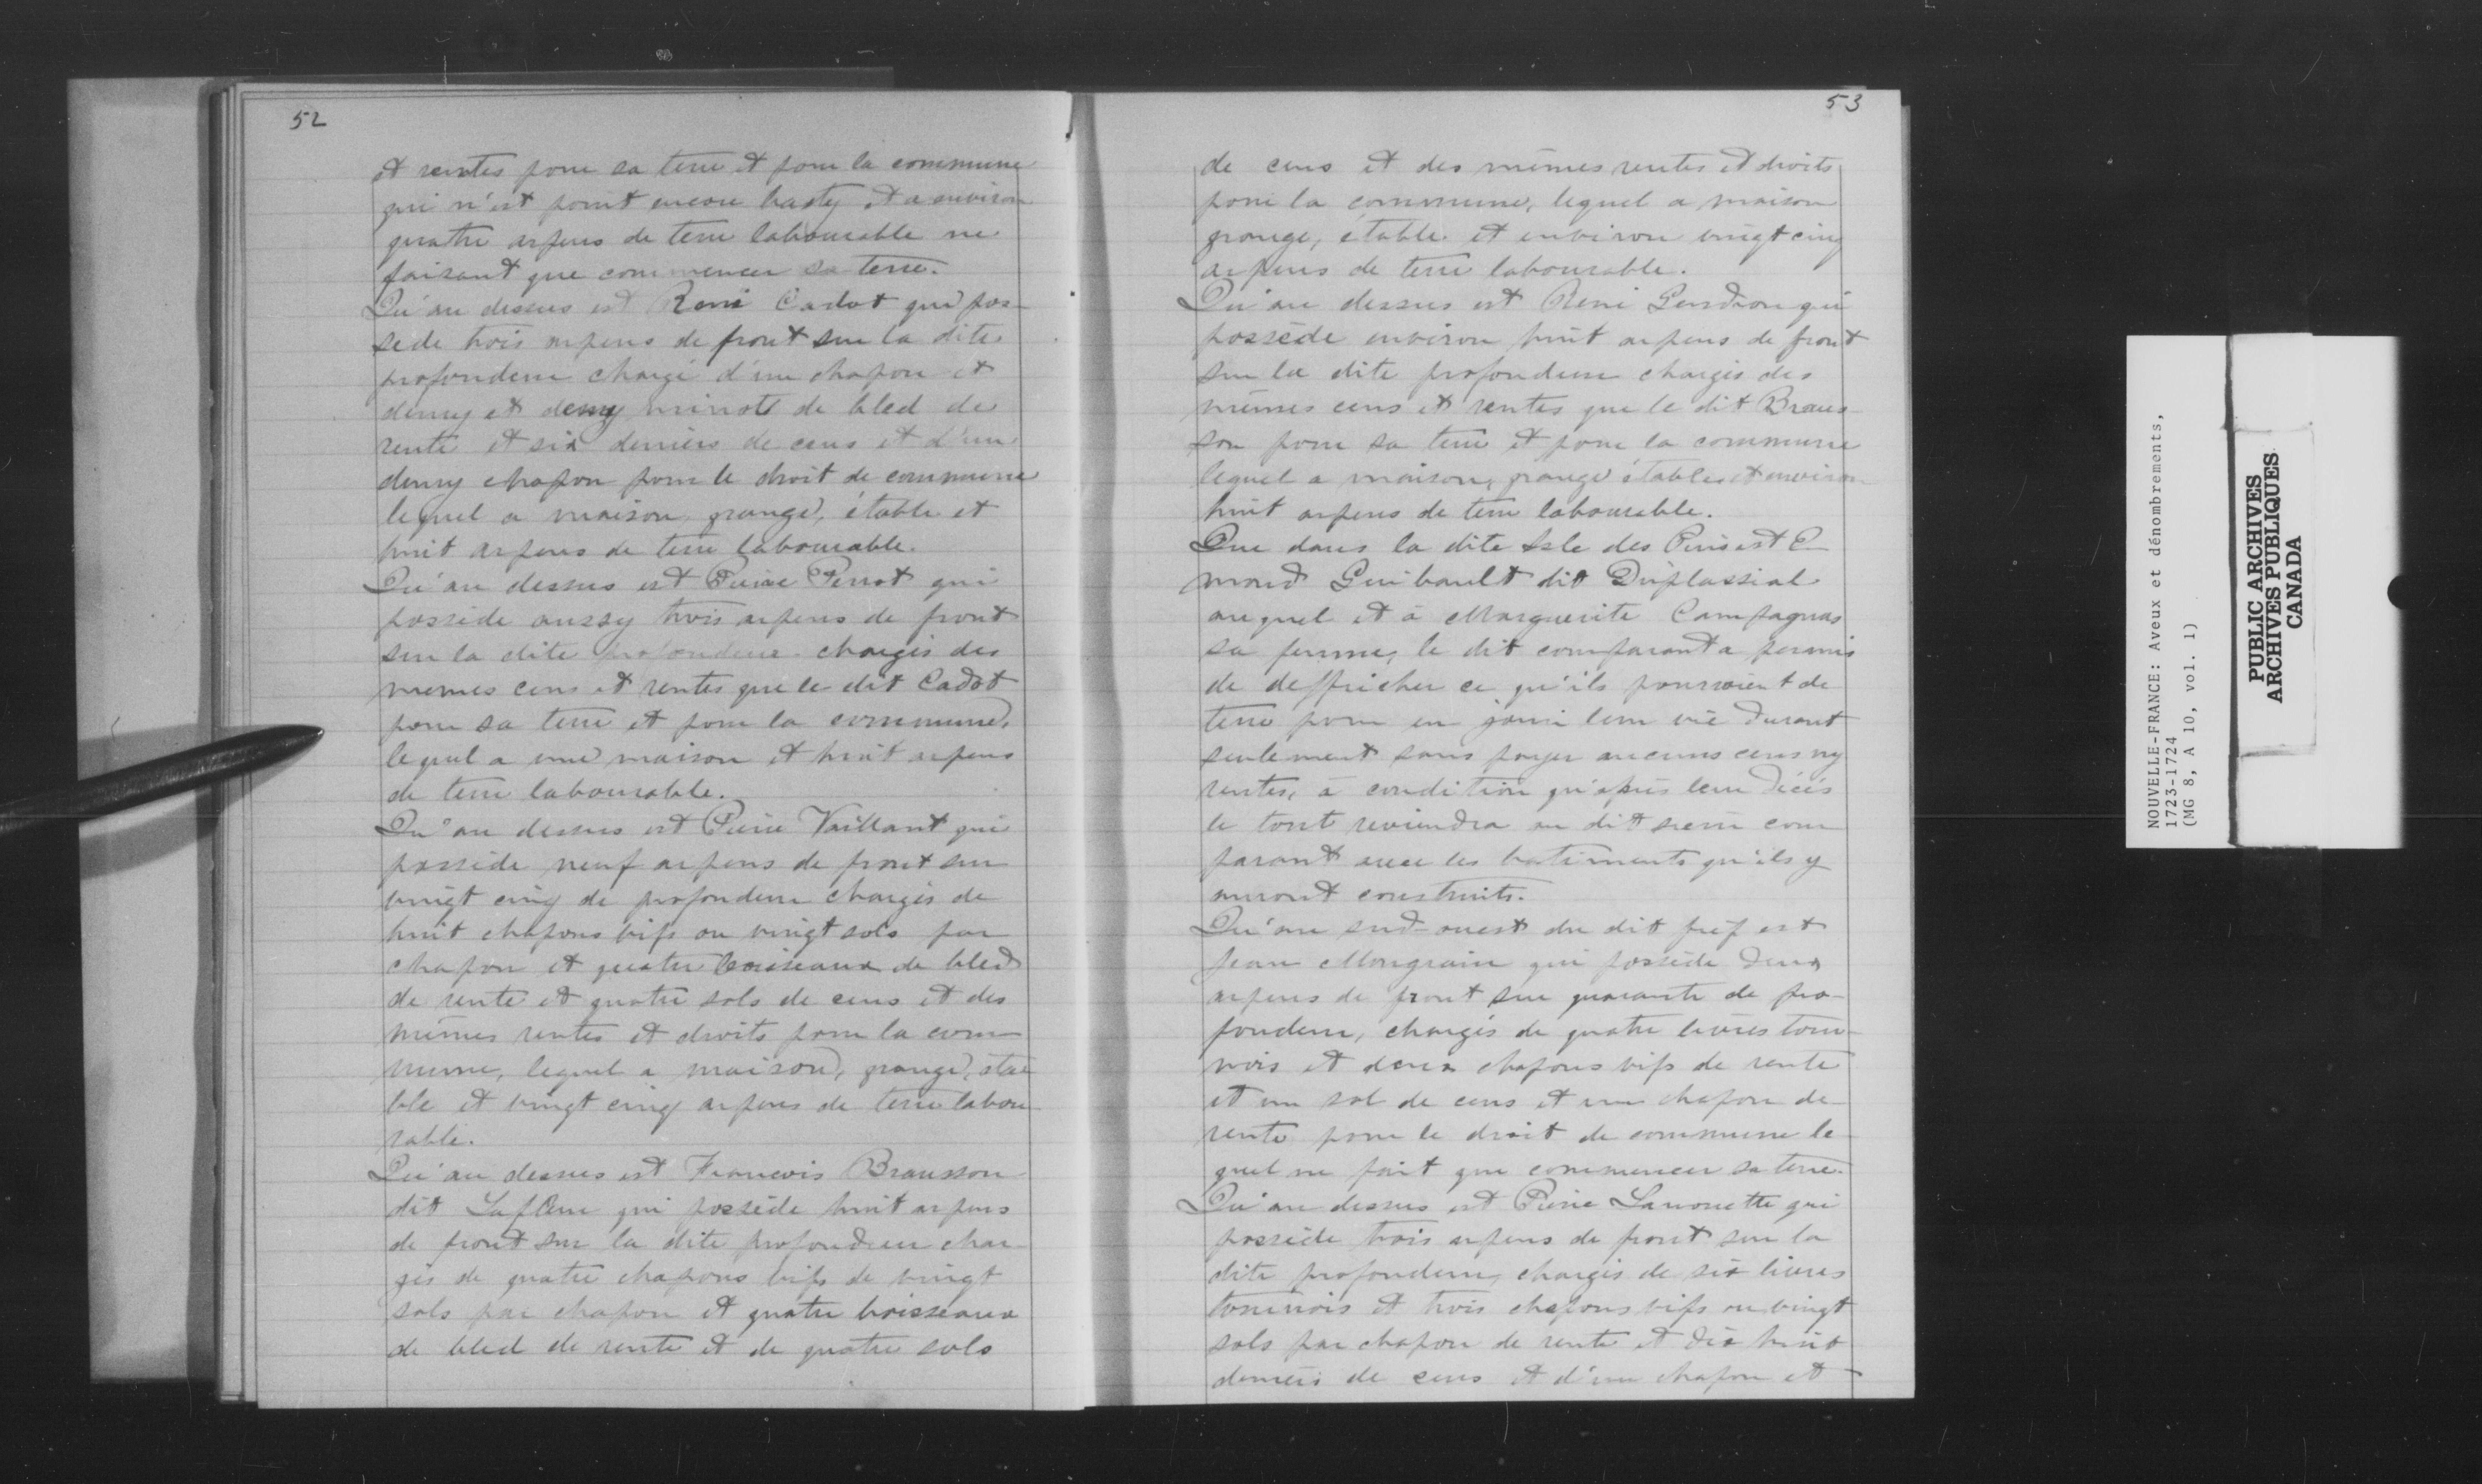 52
et rentes pour sa terre et pour la commune
qui n'est point encore basty et a environ
quatre arpens de terre labourable ne
faisant que commencer sa terre.
Qu'au dessus est René Cadot qui pos-
sede trois arpens de front sur la dite
profondeur chargé d'un chapon et
demy et demy minots de bled de
rente et six deniers de cens et d'un
demy chapon pour le droit de commune
lequel a maison, grange, étable et
huit arpens de terre labourable.
Qu'au dessus est Pierre Perrot qui
possède aussy trois arpens de front
sur la dite profondeur chargés des
memes cens et rentes que le dit Cadot
pour sa terre et pour la commune,
lequel a une maison et huit arpens
de terre labourable.
Qu'au dessus est Pierre Vaillant qui
possède neuf arpens de front sur
vingt cinq de profondeur chargés de
huit chapons vifs ou vingt sols par
chapon et quatre boisseaux de bled
de rente et quatre sols de cens et des
mêmes rentes et droits pour la com
mune, lequel a maison, grange, éta
ble et vingt cinq arpens de terre labou
rable.
Qu'au dessus est Francois Brausson
dit Lafleur qui possède huit arpens
de front sur la dite profondeur char
gés de quatre chapons vifs de vingt
sols par chapon et quatre boisseaux
de bled de rente et de quatre sols
53
de cens et des mêmes rentes et droits
pour la commune, lequel a maison
grange, étable et environ vingt cinq
arpens de terre labourable.
Qu'au dessus est René Gendron qui
possède environ huit arpens de front
sur la dite profondeur chargés des
mêmes cens et rentes que le dit Braus-
son pour sa terre et pour la commune
lequel a maison, grange étable et environ
huit arpens de terre labourable.
Que dans la dite Isle des Pins est E
mond Guibault dit Duplassial
auquel et à Marguerite Campagnas
sa femme, le dit comparant a permis
de deffricher ce qu'ils pourroient de
terre pour en jouir leur vie durant
seulement sans payer aucuns cens ny
rentes, à condition qu'après leur décès
le tout reviendra au dit sieur com
parant avec les batiments qu'ils y
auront construits.
Qu'au sud-ouest du dit fief est
Jean Mongrain qui possède deux
arpens de front sur quarante de pro-
fondeur, chargés de quatre livres tour-
nois et deux chapons vifs de rente
et un sol de cens et un chapon de
rente pour le droit de commune le
quel ne fait que commencer sa terre.
Qu'au dessus est Pierre Lanouette qui
possède trois arpens de front sur la
dite profondeur, chargés de six livres
tournois et trois chapons vifs ou vingt
sols par chapon de rente et dix huit
deniers de cens et d'un chapon et
NOUVELLE-FRANCE: Aveux et dénombrements,
1723-1724
(MG 8, A 10, vol. 1)
PUBLIC ARCHIVES
ARCHIVES PUBLIQUES
CANADA